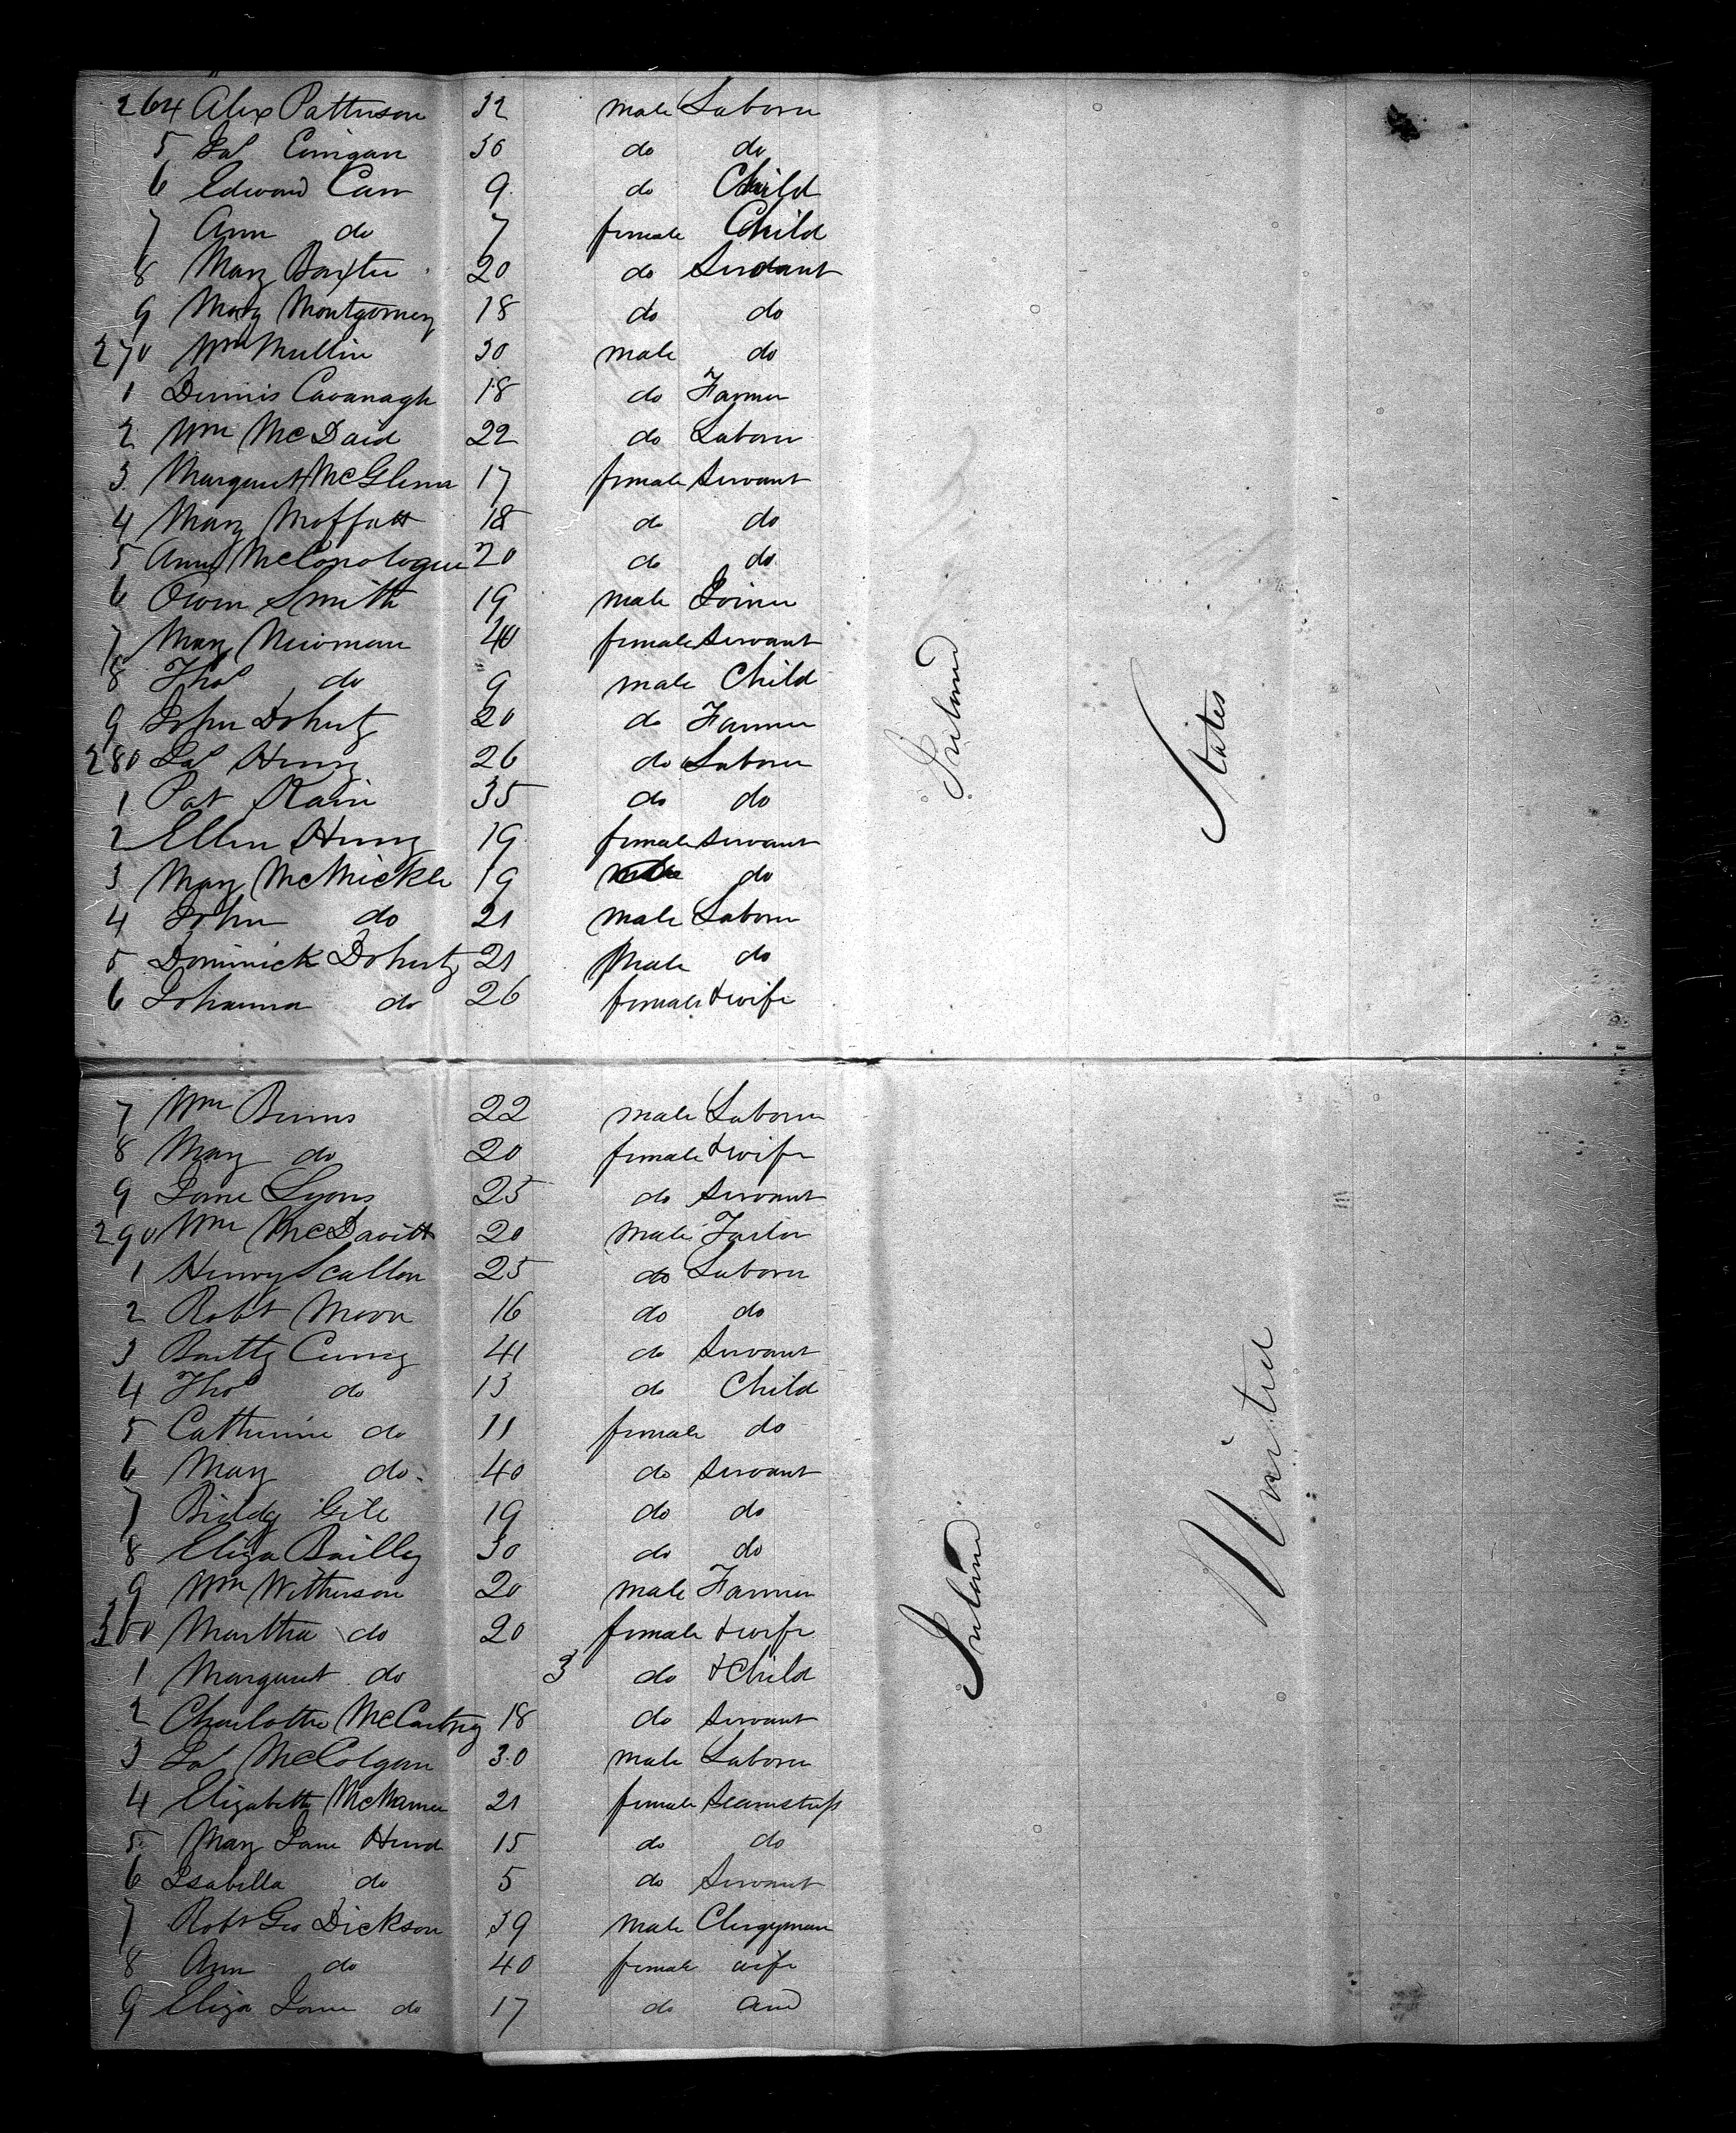 264 Alex Patterson 32 male Laborer
5 Jas Corrigan 30 do do
6 Edward Carr 9 do Child
7 Ann do 7 female Child
8 Mary Baxter 20 do Servant
9 Mary Montgomery 18 do do
270 Wm Mullin 30 male do
1 Dennis Cavanagh 18 do Farmer
2 Wm McDaid 22 do Laborer
3 Margaret McGlenn 17 female Servant
4 Mary Moffatt 18 do do
5 Ann McConologue 20 do do
6 Owen Smith 19 male Joiner
7 Mary Newman 40 female Servant
8 Thos do 9 male Child
9 John Doherty 20 do Farmer
280 Jas Henry 26 do Laborer
1 Pat Kain 35 do do
2 Ellen Henry 19 female Servant
3 Mary McMickle 19 do
4 John do 21 male Laborer
5 Dominick Doherty 21 Male do
6 Johanna do 26 female & wife
Ireland
States
7 Wm Burns 22 male Laborer
8 Mary do 20 female & wife
9 Jane Lyons 25 do Servant
290 Wm McDavitt 20 male Tailor
1 Henry Scallon 25 do Laborer
2 Robt Moon 16 do do
3 Batty Curry 41 do Servant
4 Thos do 13 do Child
5 Catherine do 11 female do
6 Mary do 40 do Servant
7 Biddy Gile 19 do do
8 Eliza Bailley 30 do do
9 Wm Witherson 20 male Farmer
300 Martha do 20 female & wife
1 Margaret do 3 do & Child
2 Charlotte McCartney 18 do Servant
3 Jas McColgan 30 male Laborer
4 Elizabeth McNamee 21 female Seamstress
5 Mary Jane Hurd 15 do do
6 Isabella do 5 do Servant
7 Robt Geo Dickson 39 male Clergyman
8 Ann do 40 female wife
9 Eliza Jane do 17 do and
Ireland
United